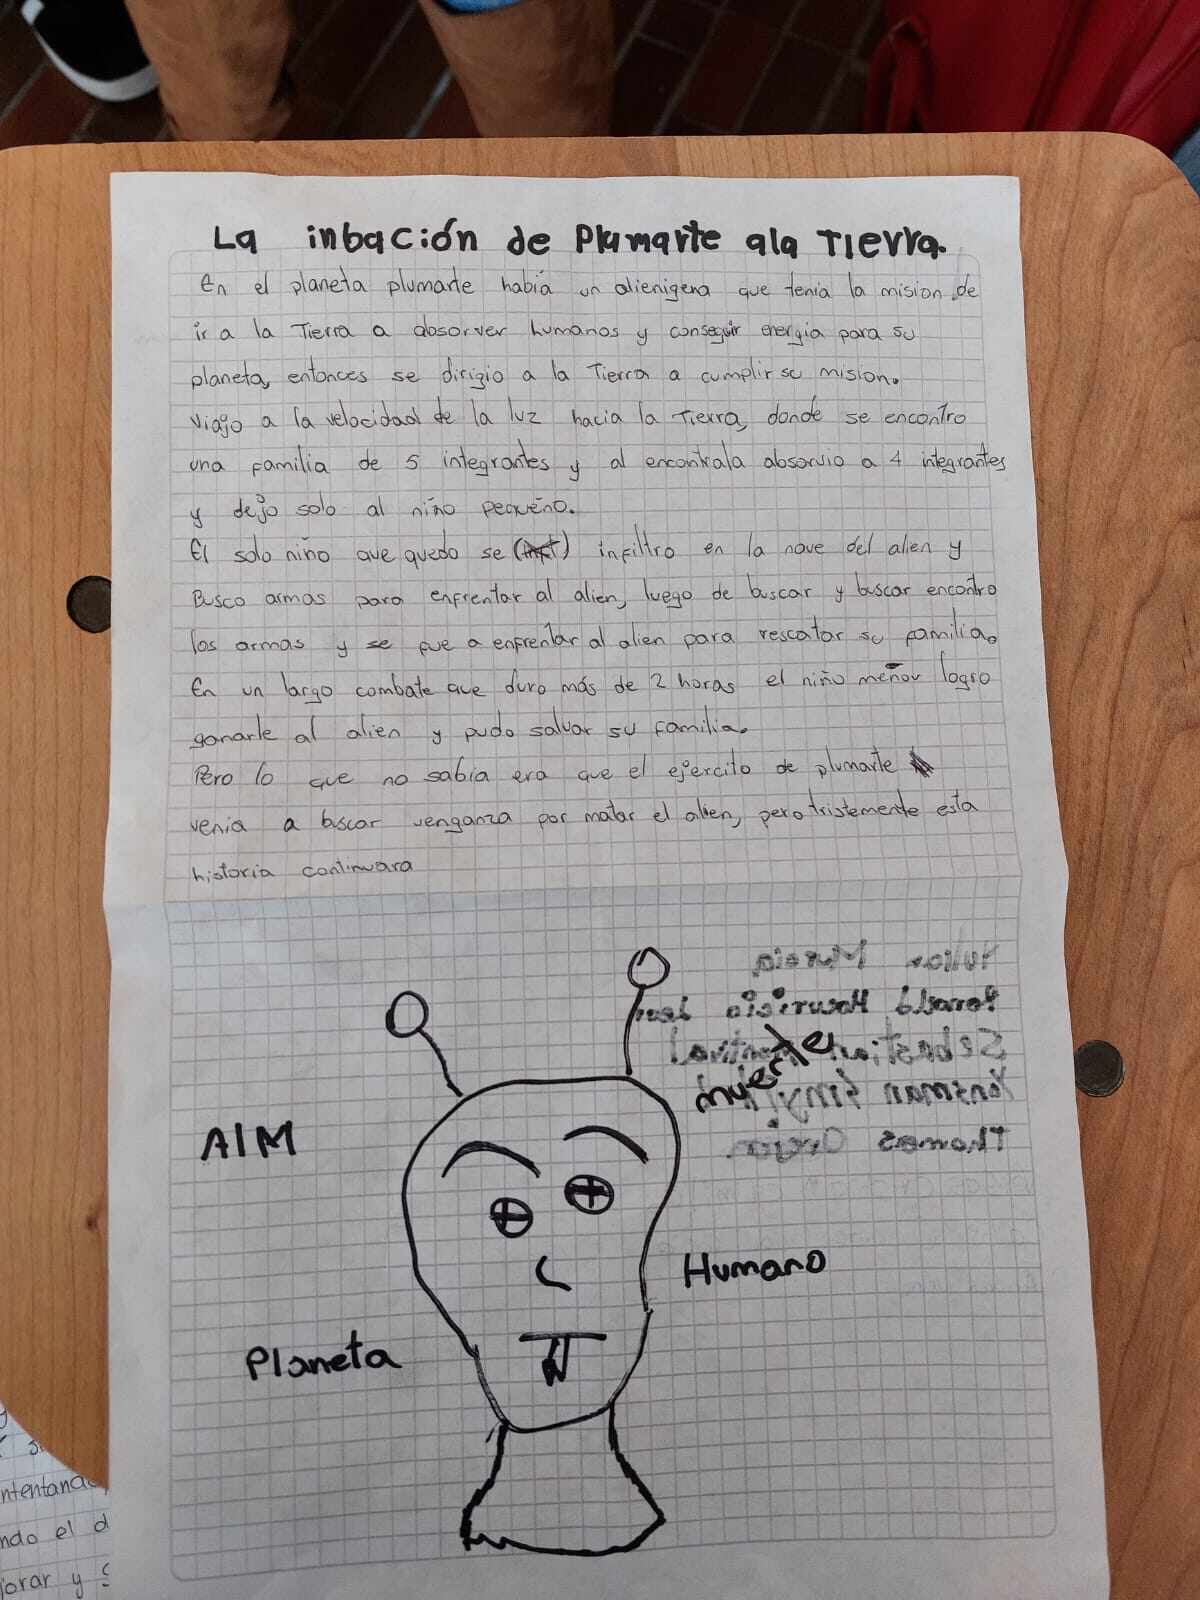 La inbación de Plumarte ala Tierra.
En el planeta plumarte había un alienigena que tenia la mision de
ir a la Tierra a absorver humanos y conseguir energia para su
planeta, entonces se dirigio a la Tierra a cumplir su mision.
Viajo a la velocidad de la luz hacia la Tierra, donde se encontro
una familia de 5 integrantes y al encontrala absorvio a 4 integrantes
y dejo solo al niño pequeño.
El solo niño que quedo se infiltro en la nave del alien y
Busco armas para enfrentar al alien, luego de buscar y buscar encontro
las armas y se fue a enfrentar al alien para rescatar su familia.
En un largo combate que duro más de 2 horas el niño meñor logro
ganarle al alien y pudo salvar su familia.
Pero lo que no sabia era que el ejercito de plumarte
venia a buscar venganza por matar el alien, pero tristemente esta
historia continuara
Murcia
Mauricio
Sebastian
muerte
AIM
Thomas
Humano
Planeta
ntentando
ndo el d
jorar y